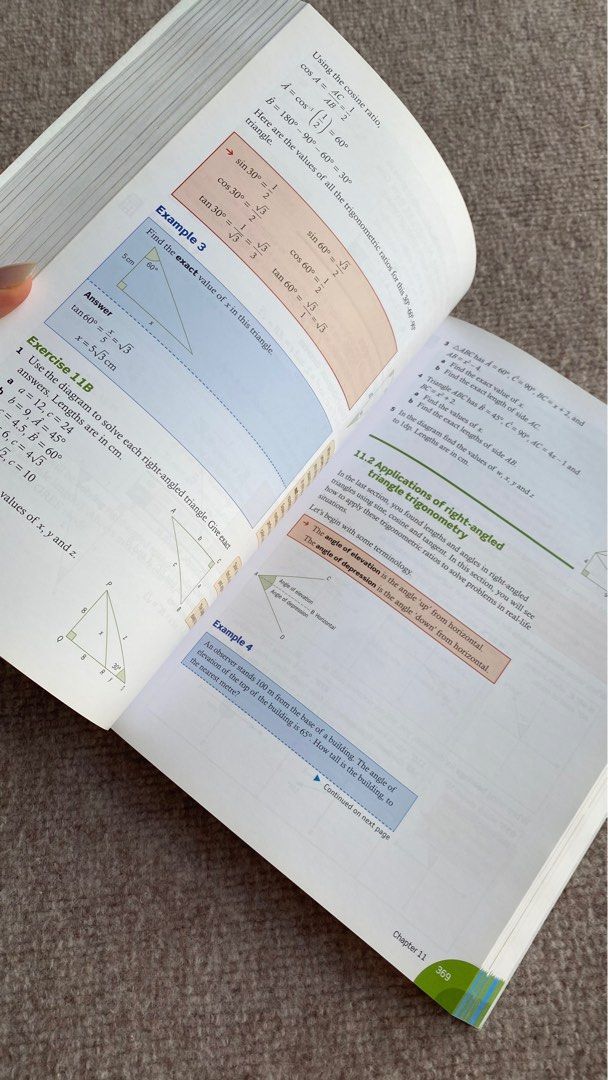 Using the cosine ratio,
cos A = AC/AB = 1/2
Â = cos⁻¹(1/2) = 60°
B̂ = 180° − 90° − 60° = 30°
Here are the values of all the trigonometric ratios for this 30°-60°-90°
triangle.
→ sin 30° = 1/2 sin 60° = √3/2
cos 30° = √3/2 cos 60° = 1/2
tan 30° = 1/√3 = √3/3 tan 60° = √3/1 = √3
Example 3
Find the exact value of x in this triangle.
5 cm
60°
x
Answer
tan 60° = x/5 = √3
x = 5√3 cm
Exercise 11B
1 Use the diagram to solve each right-angled triangle. Give exact
answers. Lengths are in cm.
a a = 12, c = 24
c = 9, Â = 45°
4.5, B̂ = 60°
6, c = 4√3
c = 10
A
b
C
c
a
B
values of x, y and z.
P
8
x
Q
8
R
30°
3 △ABC has Â = 60°, Ĉ = 90°, BC = x + 2, and
AB = x² − 4.
a Find the exact value of x.
b Find the exact length of side AC.
4 Triangle ABC has B̂ = 45°, Ĉ = 90°, AC = 4x − 1 and
BC = x² + 2.
a Find the values of x.
b Find the exact lengths of side AB.
5 In the diagram find the values of w, x, y and z
to 1dp. Lengths are in cm.
11.2 Applications of right-angled
triangle trigonometry
In the last section, you found lengths and angles in right-angled
triangles using sine, cosine and tangent. In this section, you will see
how to apply these trigonometric ratios to solve problems in real-life
situations.
Let's begin with some terminology.
→ The angle of elevation is the angle 'up' from horizontal.
The angle of depression is the angle 'down' from horizontal.
A
C
Angle of elevation
B Horizontal
Angle of depression
D
Example 4
An observer stands 100 m from the base of a building. The angle of
elevation of the top of the building is 65°. How tall is the building, to
the nearest metre?
Continued on next page
Chapter 11
369